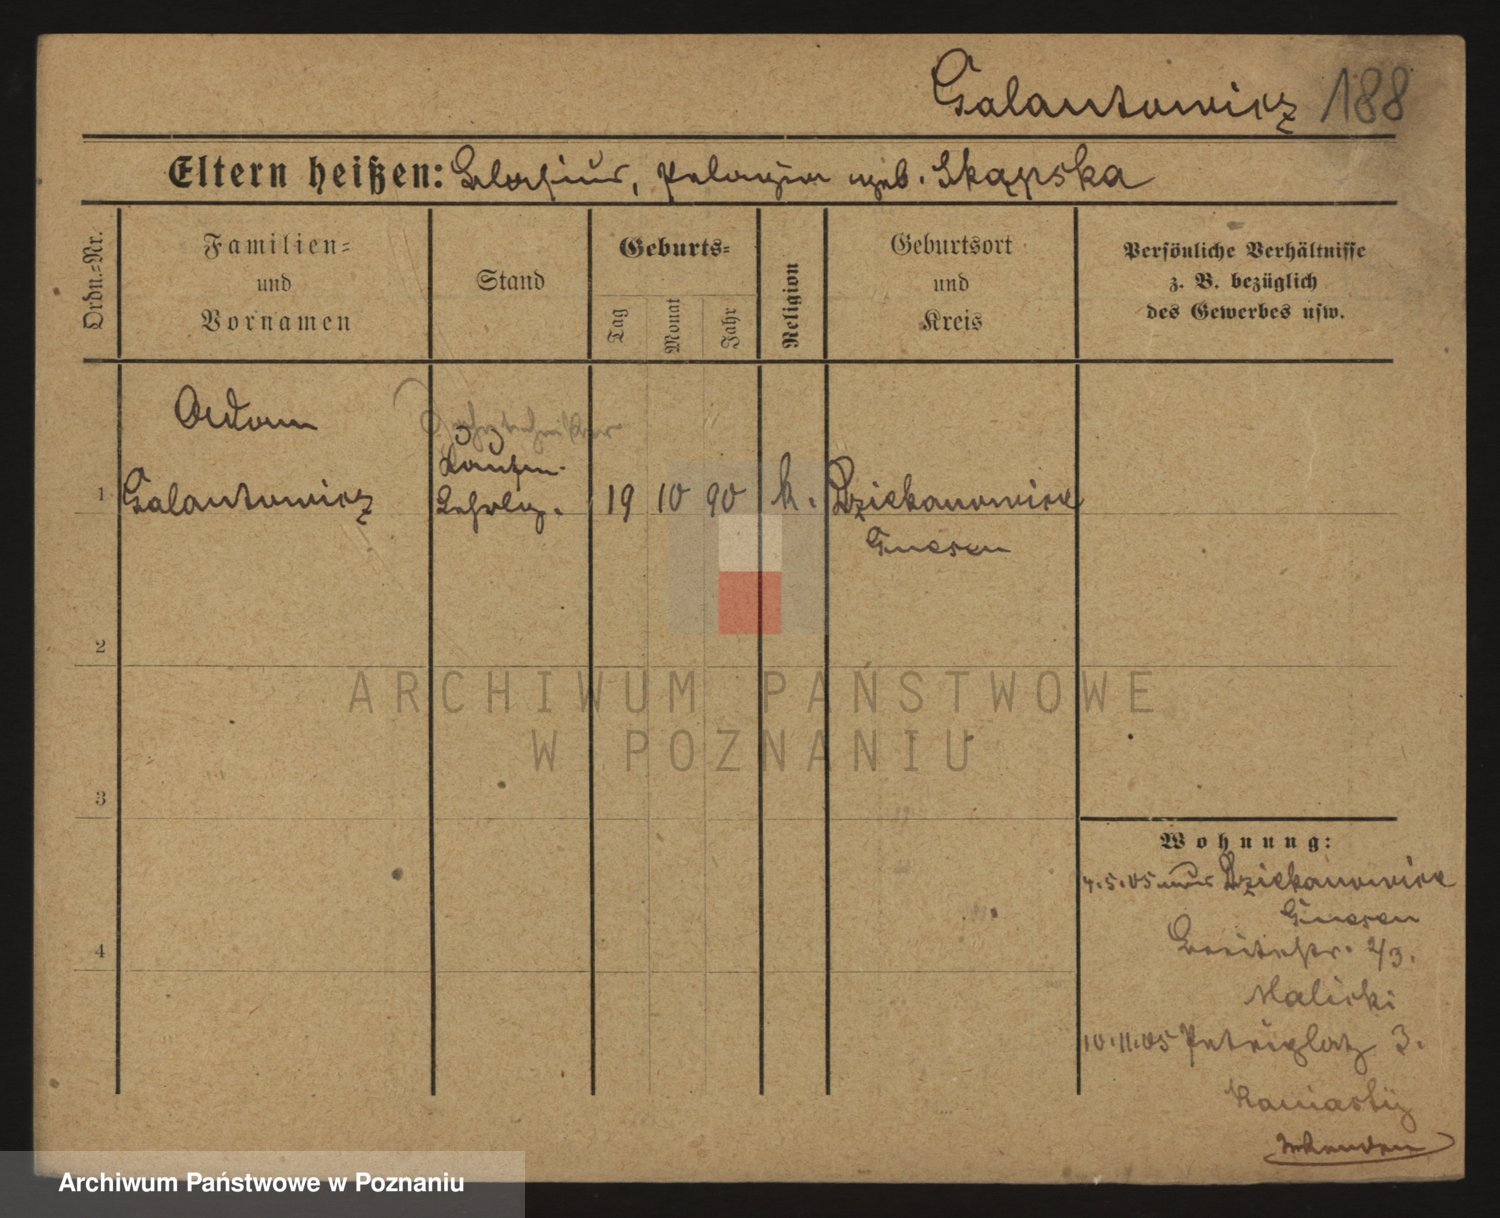 Galantowicz 188
Eltern heißen: Blasius, Pelagia geb. Skąpska
Ordn.-Nr.
Familien-
und
Vornamen
Stand
Geburts-
Tag
Monat
Jahr
Religion
Geburtsort
und
Kreis
Persönliche Verhältnisse
z. B. bezüglich
des Gewerbes usw.
Adam
1 Galantowicz
Kaufm.
Lehrlg.
19 10 90 k. Dziekanowice
Gnesen
2
3
4
ARCHIWUM PAŃSTWOWE
W POZNANIU
Wohnung:
4.5.05 aus Dziekanowice
Gnesen
Breitestr. 2/3.
Malicki
10.11.05 Petriplatz 3.
Archiwum Państwowe w Poznaniu